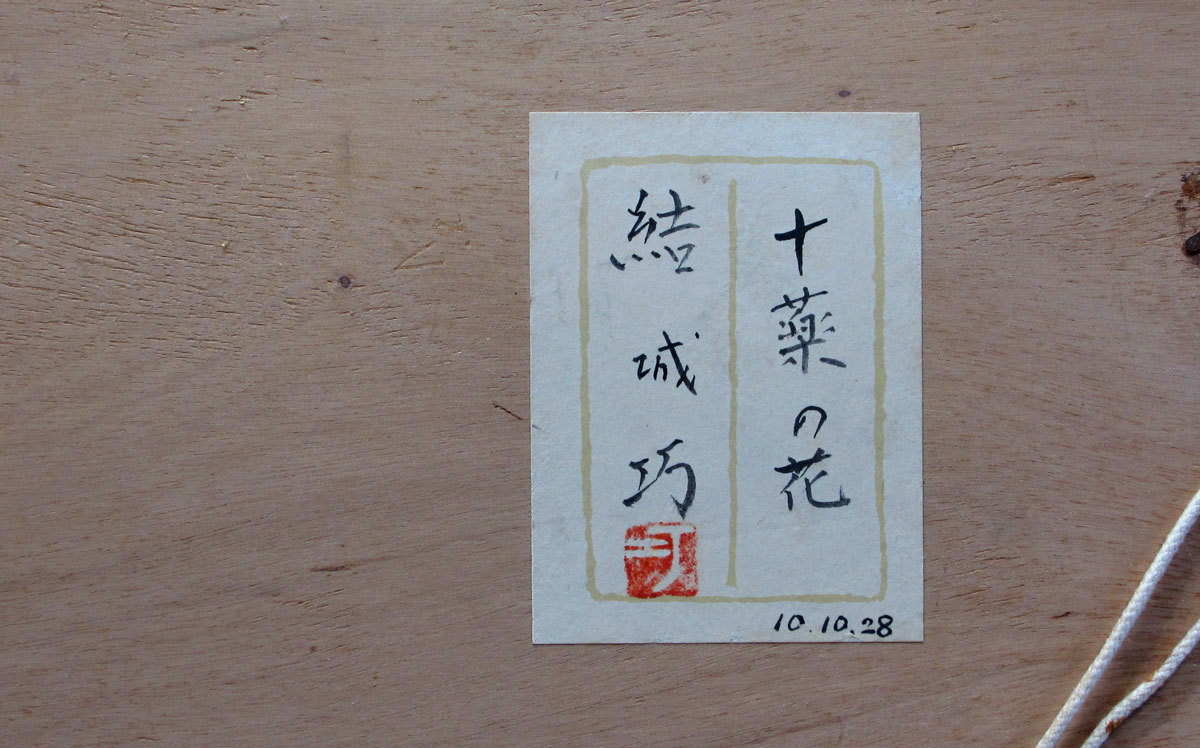 十薬の花
結城巧
10.10.28